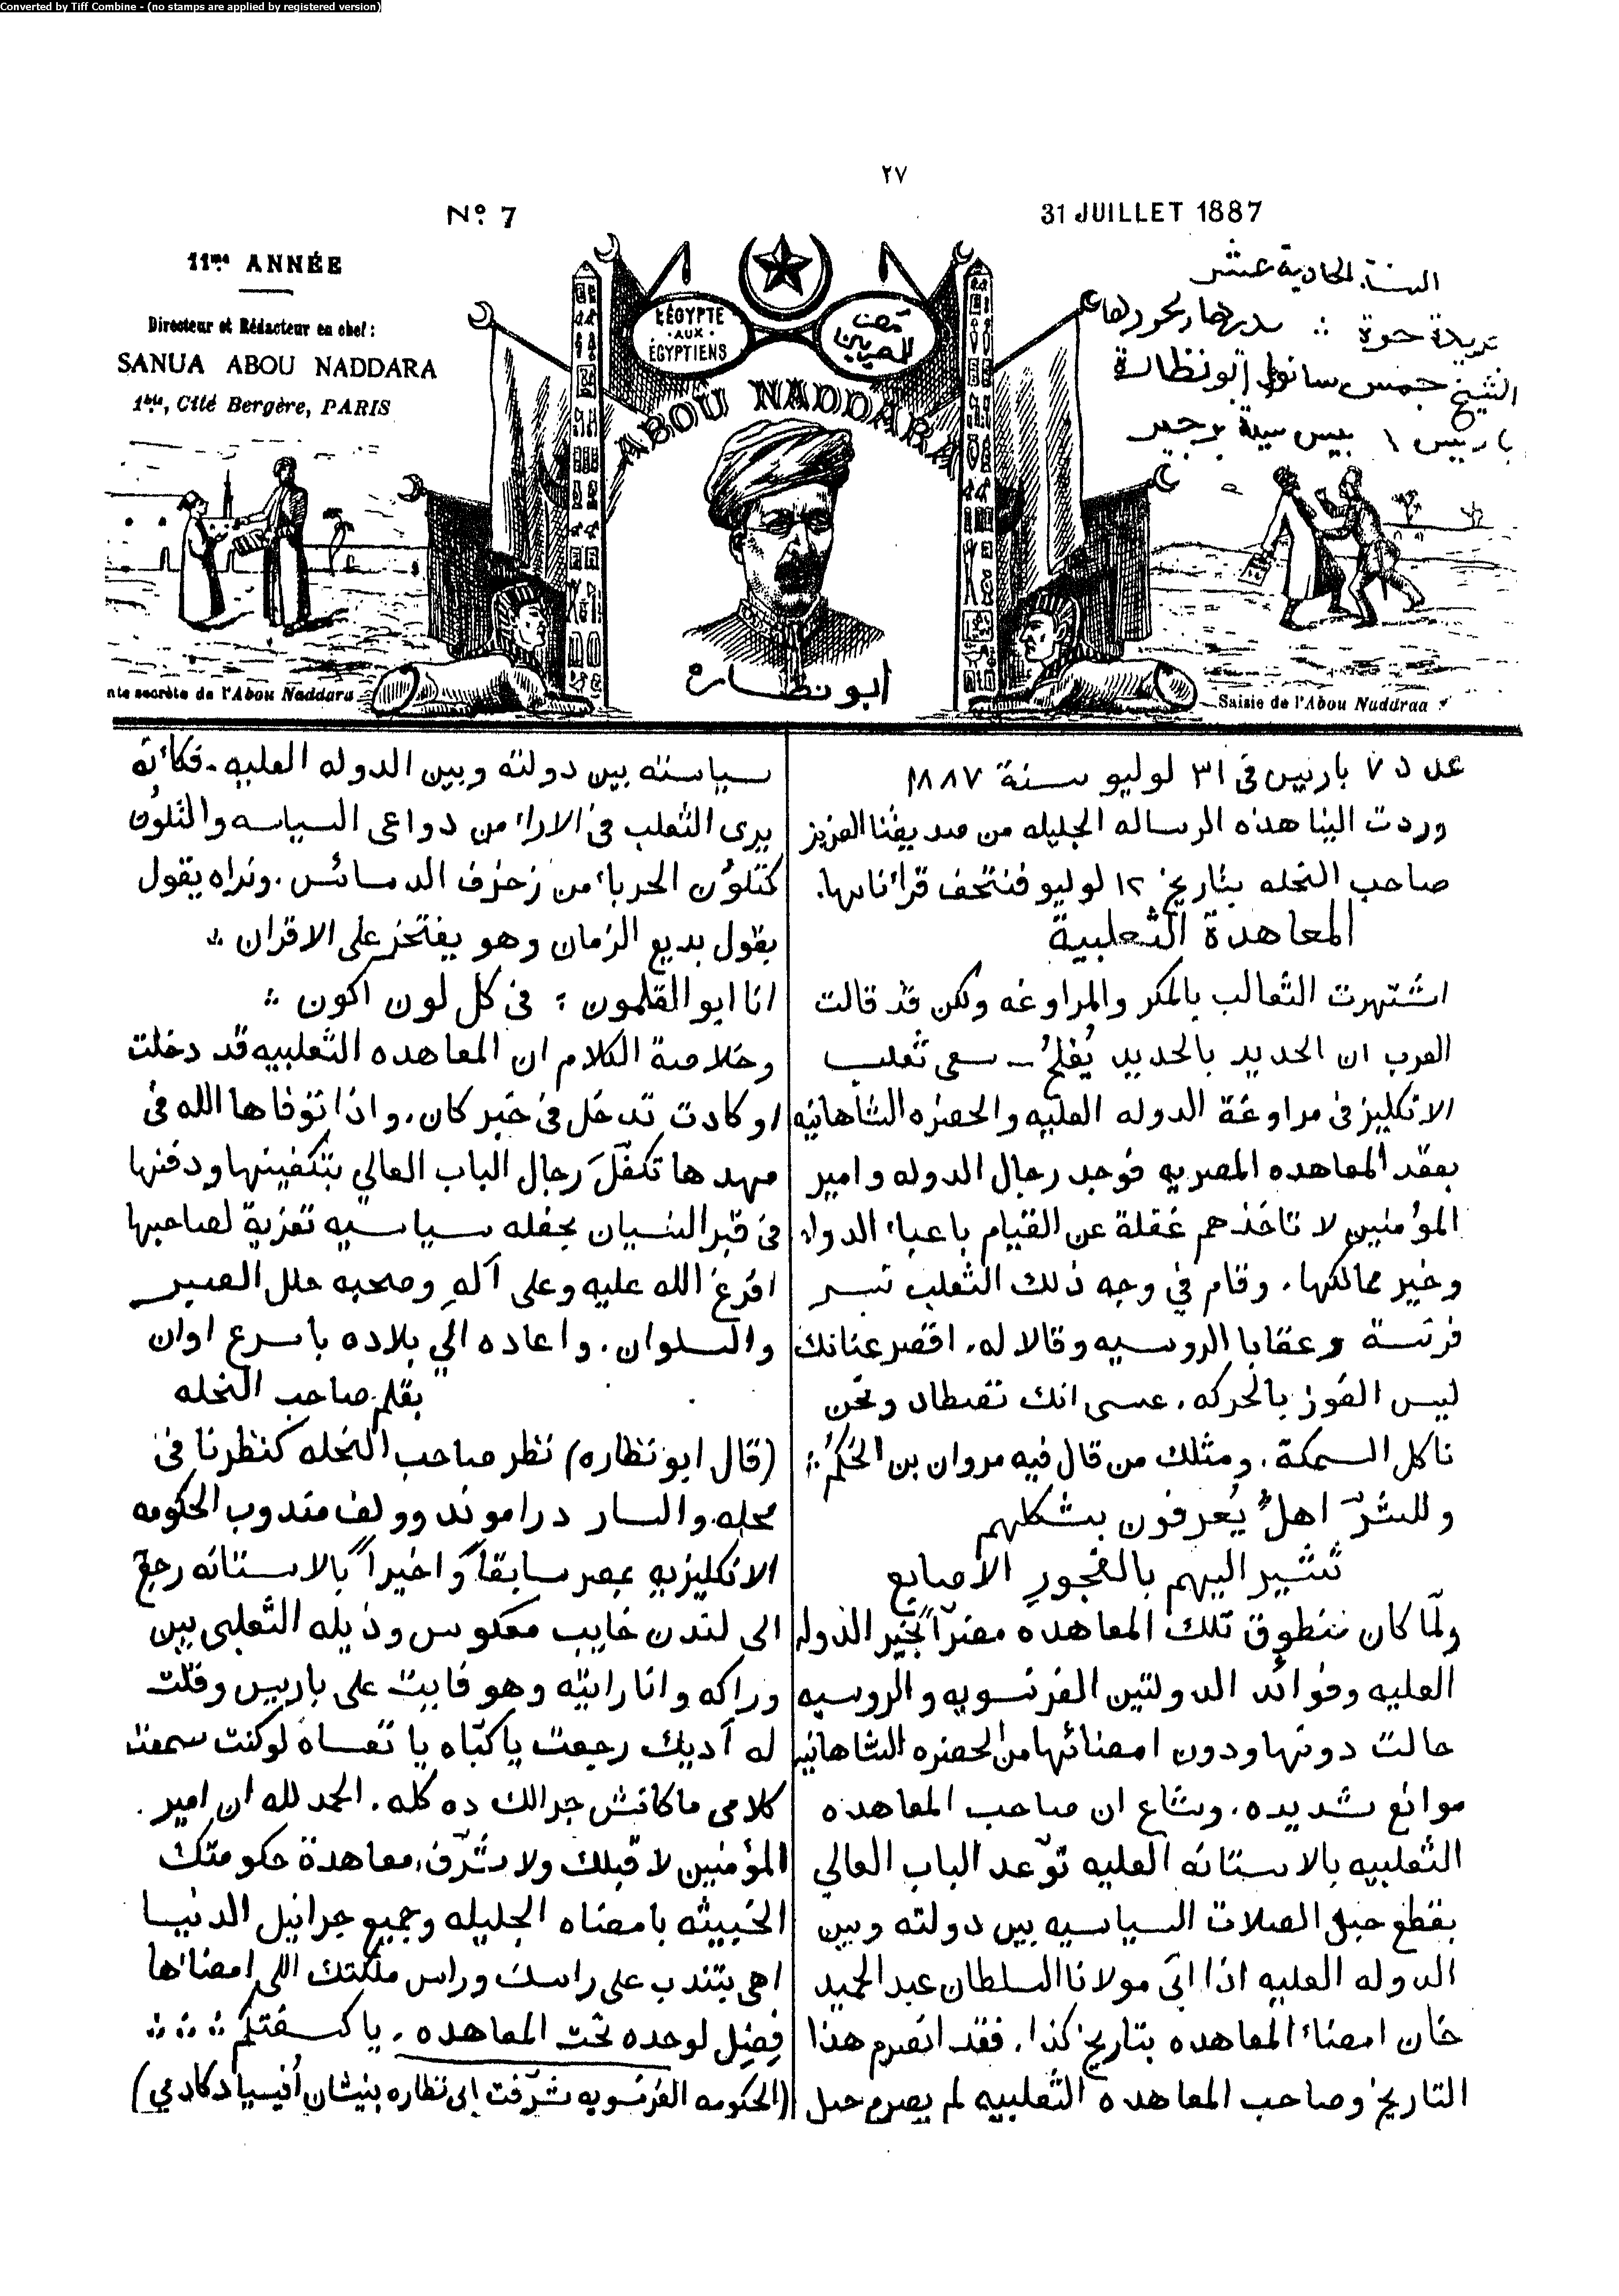 Converted by Tiff Combine - (no stamps are applied by registered version)
٢٧
No. 7
31 JUILLET 1887
11me ANNÉE
Directeur et Rédacteur en chef :
SANUA ABOU NADDARA
1bis, Cité Bergère, PARIS
السنة الحادية عشر
جريدة حرة ∴ مديرها ومحررها
الشيخ جمس سانوا ابو نظارة
باريس ١ بيس سيتة برجير
L'ÉGYPTE
AUX
ÉGYPTIENS
مصر
للمصريين
ABOU NADDARA
ابو نظاره
nte secrète de l'Abou Naddara
Saisie de l'Abou Naddraa
عدد ٧ باريس فى ٣١ لوليو سنة ١٨٨٧
وردت الينا هذه الرساله الجليله من صديقنا العزيز
صاحب النحله بتاريخ ١٢ لوليو فنتحف قرائنا بها.
المعاهدة الثعلبية
اشتهرت الثعالب بالمكر والمراوغه ولكن قد قالت
العرب ان الحديد بالحديد يُفلحُ ــ سعى ثعلب
الانكليز فى مراوغة الدوله العليه والحضره الشاهانيه
بعقد المعاهده المصريه فوجد رجال الدوله وامير
المؤمنين لا تاخذهم غفلة عن القيام باعباء الدوله
وخير ممالكها. وقام في وجه ذلك الثعلب نسر
فرنسة وعقابا الروسيه وقالا له. اقصر عنانك
ليس الفوز بالحركه. عسى انك تصطاد ونحن
ناكل السمكة. ومثلك من قال فيه مروان بن الحَكَمُ ∴
وللشرّ اهلٌ يُعرفون بشكلهم
تشير اليهم بالفجورِ الاصابع
ولمّا كان منطوق تلك المعاهده مضرّاً بخير الدوله
العليه وفوائد الدولتين الفرنسويه والروسيه
حالت دونها ودون امضائها من الحضره الشاهانيه
موانع شديده. وشاع ان صاحب المعاهده
الثعلبيه بالاستانه العليه توّعد الباب العالي
بقطع حبل الصلات السياسيه بين دولته وبين
الدوله العليه اذا ابى مولانا السلطان عبد الحميد
خان امضاء المعاهده بتاريخ كذا. فقد انصرم هذا
التاريخ وصاحب المعاهده الثعلبيه لم يصرم حبل
سياسته بين دولته وبين الدوله العليه - فكأنه
يرى الثعلب فى الاراء من دواعى السياسه والتلوّن
كتلوُّن الحرباء من زخرف الدسائس. ونراه يقول
بقول بديع الزمان وهو يفتخر على الاقران ∴
انا ابو القلمون ؛ فى كل لون اكون ∴
وخلاصة الكلام ان المعاهده الثعلبيه قد دخلت
او كادت تدخل فى خبر كان. واذا توفاها الله فى
مهدها تكفّلَ رجال الباب العالي بتكفينها ودفنها
فى قبر النسيان بحفله سياسيه تعزية لصاحبها
افرغ الله عليه وعلى آلهِ وصحبه حلل الصبر
والسلوان. واعاده الي بلاده باسرع اوان
بقلم صاحب النحله
(قال ابو نظاره) نظر صاحب النحله كنظرنا فى
محله. والسار دراموند وولف مندوب الحكومه
الانكليزيه بمصر سابقاً واخيراً بالاستانه رجع
الى لندن خايب معكوس وذيله الثعلبى بين
وراكه وانا رايته وهو فايت على باريس وقلت
له آديك رجعت ياكبّاه يا تعساه لوكنت سمعت
كلامى ماكانش جرالك ده كله. الحمد لله ان امير
المؤمنين لا قبلك ولا شرّف معاهدة حكومتك
الخبيثه بامضاه الجليله وجميع جرانيل الدنيا
اهى بتندب على راسك وراس ملكتك اللى امضائها
فِضِل لوحده تحت المعاهده. يا كسفتكم ∴ ∴ ∴
(الحكومه الفرنسويه شرّفت ابى نظاره بنيشان أفيسيا دكادمي)